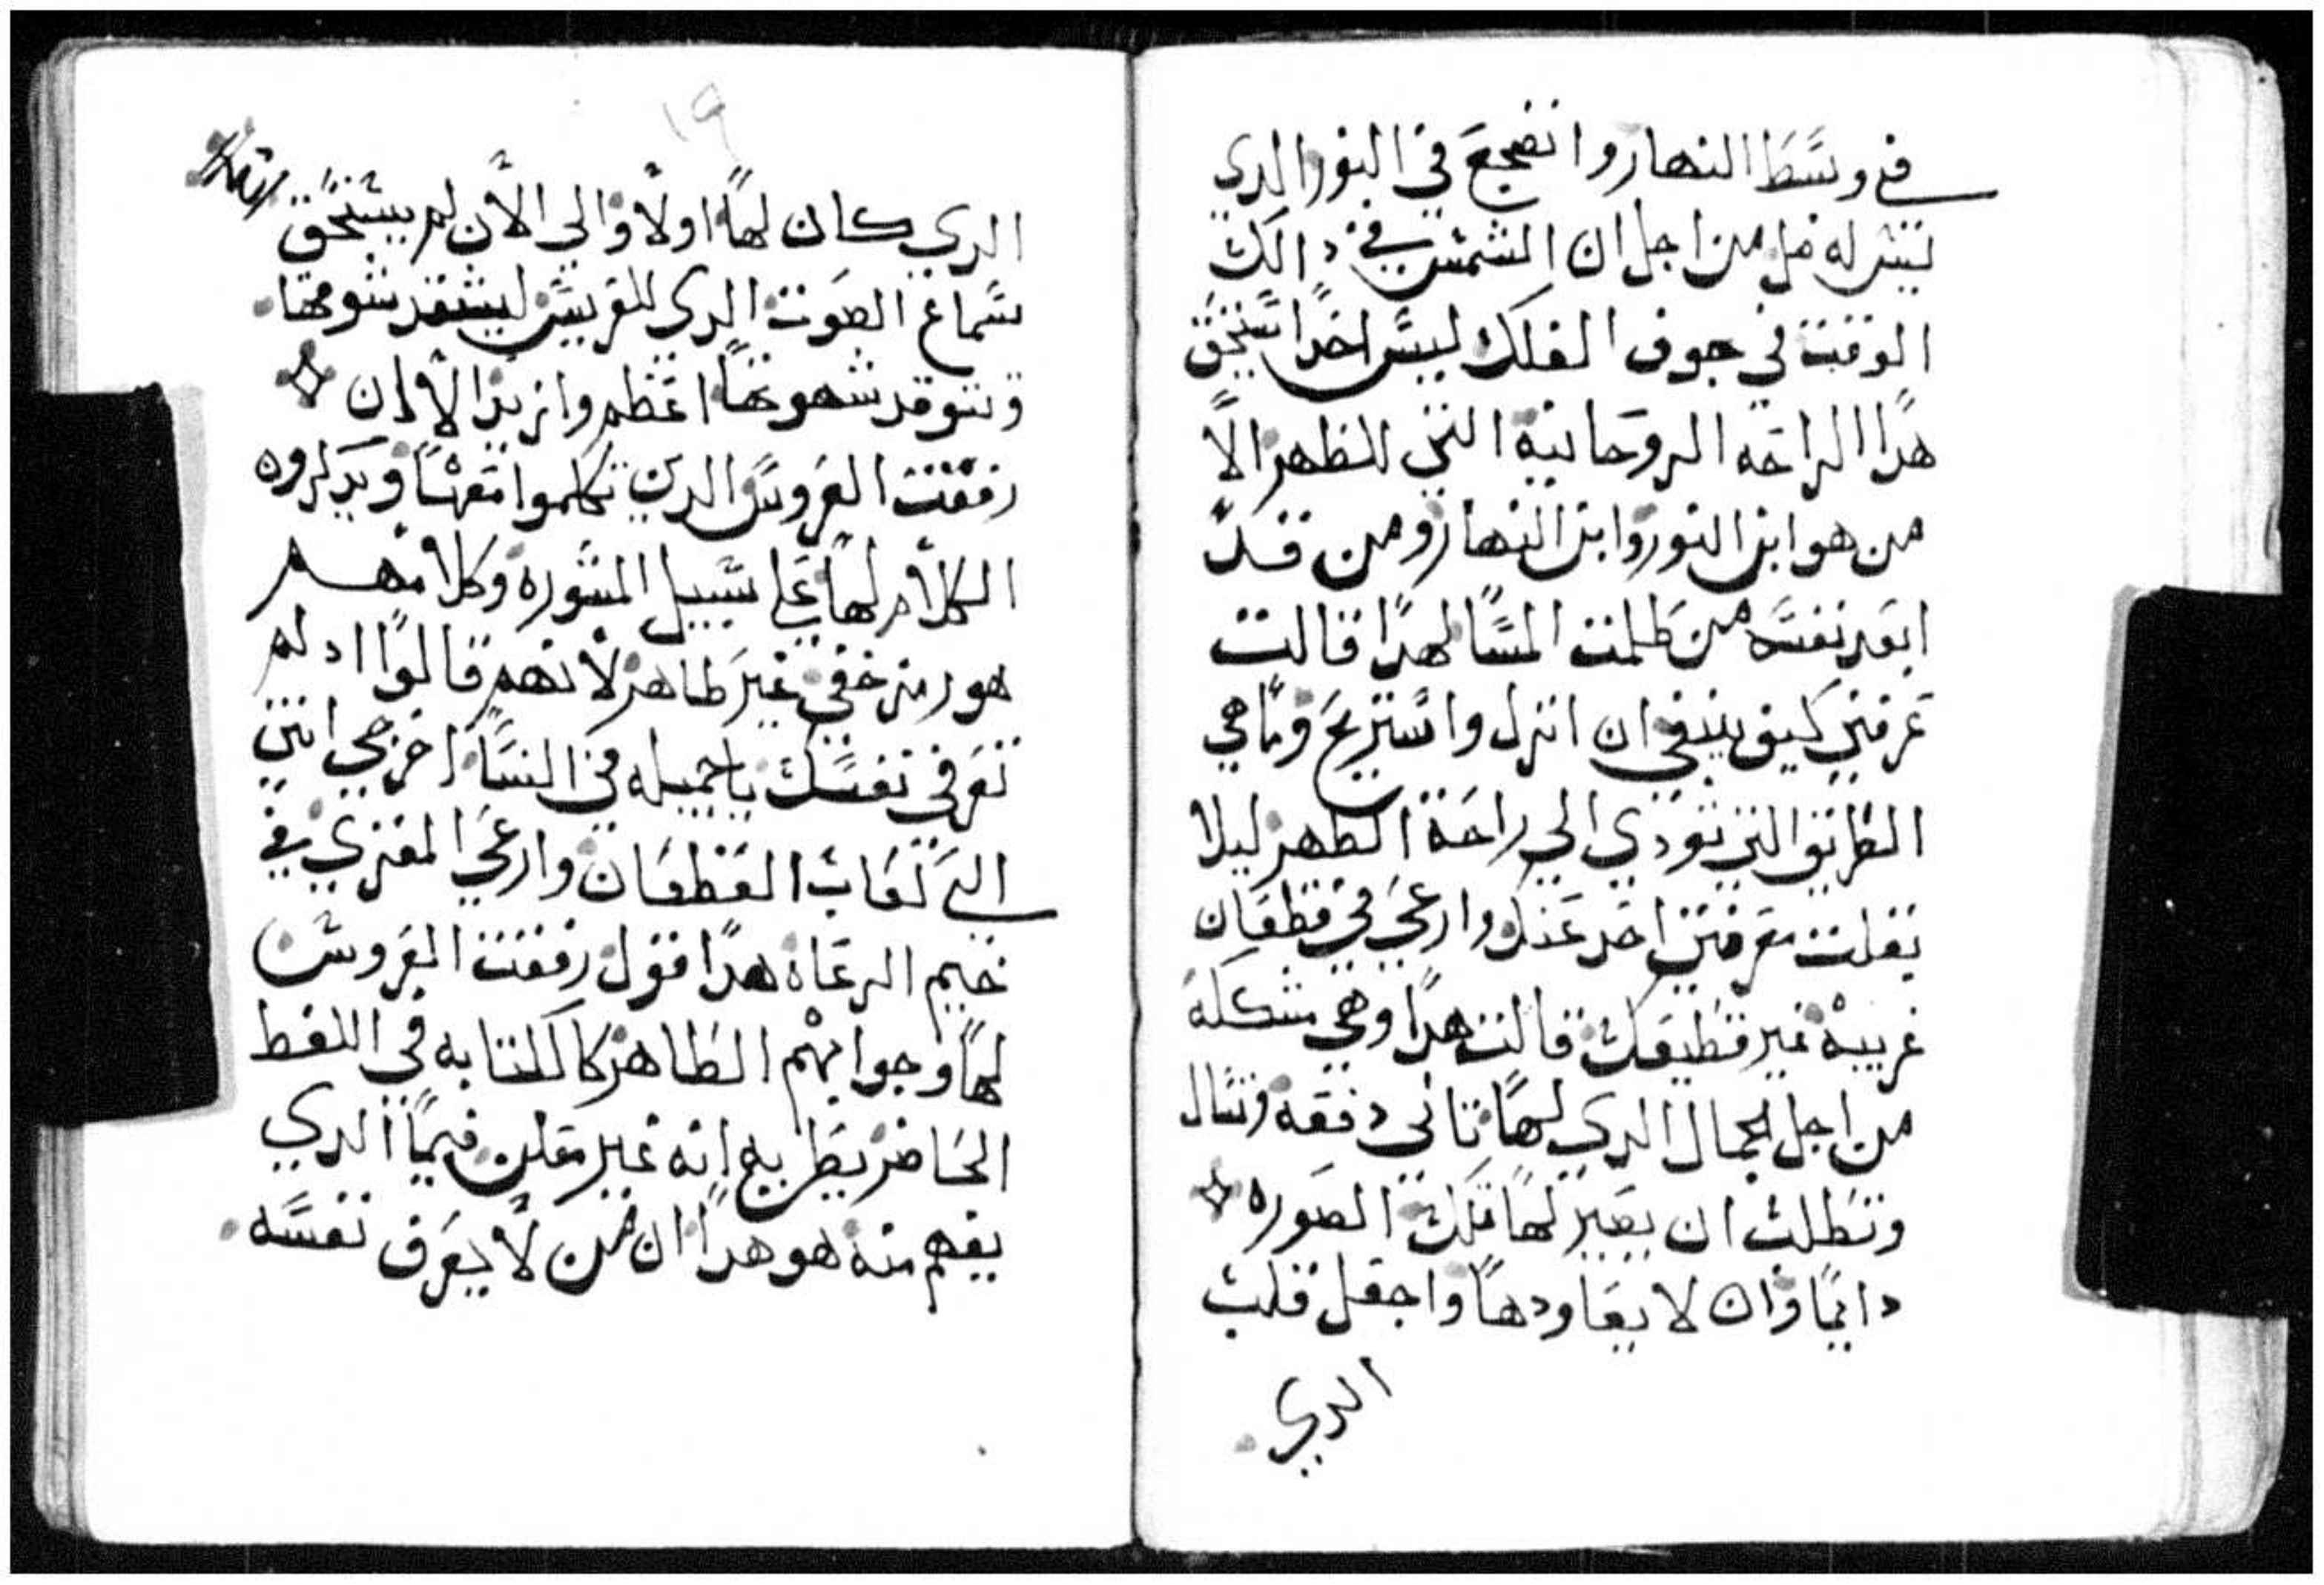 في وسط النهار وانضجع في النور الدي
ليس له ضل من اجل ان الشمس في دالك
الوقت في جوف الفلك ليس احدا يستحق
هدا الراحه الروحانية التي للظهر الا
من هو ابن النور وابن النهار ومن قد
ابعد نفسه من ظلمت المسا لهدا قالت
عرفني كيف ينبغي ان انزل واستريح وما هي
الطريق التي تودي الي راحة الظهر ليلا
بقلت معرفتي احد عنك وارعي في قطعان
غريبة غير قطيعك قالت هدا وهي مشكله
من اجل الجمال الدي لها تاني دفعه وتسال
وتطلب ان يصير لها تلك الصوره
دايما وان لا يعاودها واجعل قلب
الدي
١٩
الدي كان لها اولا والي الان لم يستحق
سماع الصوت الدي للعريس ليشتد شوقها
وتتوقد شهوتها اعظم وازيد الان
رفقت العروس الدين تكلموا معها ويدكروه
الكلام لها علي سبيل المشوره وكلامهم
هو رمز خفي غير ظاهر لانهم قالوا ادلم
تعرفي نفسك يا جميله في النسا اخرجي انتي
الي اعقاب القطعان وارعي المعزي في
خيم الرعاة هدا قول رفقت العروس
لها وجوابهم الظاهر كالكتابه في اللفظ
الحاضر يظن به انه غير معلن فيما الدي
يفهم منه هو هدا ان من لا يعرف نفسه